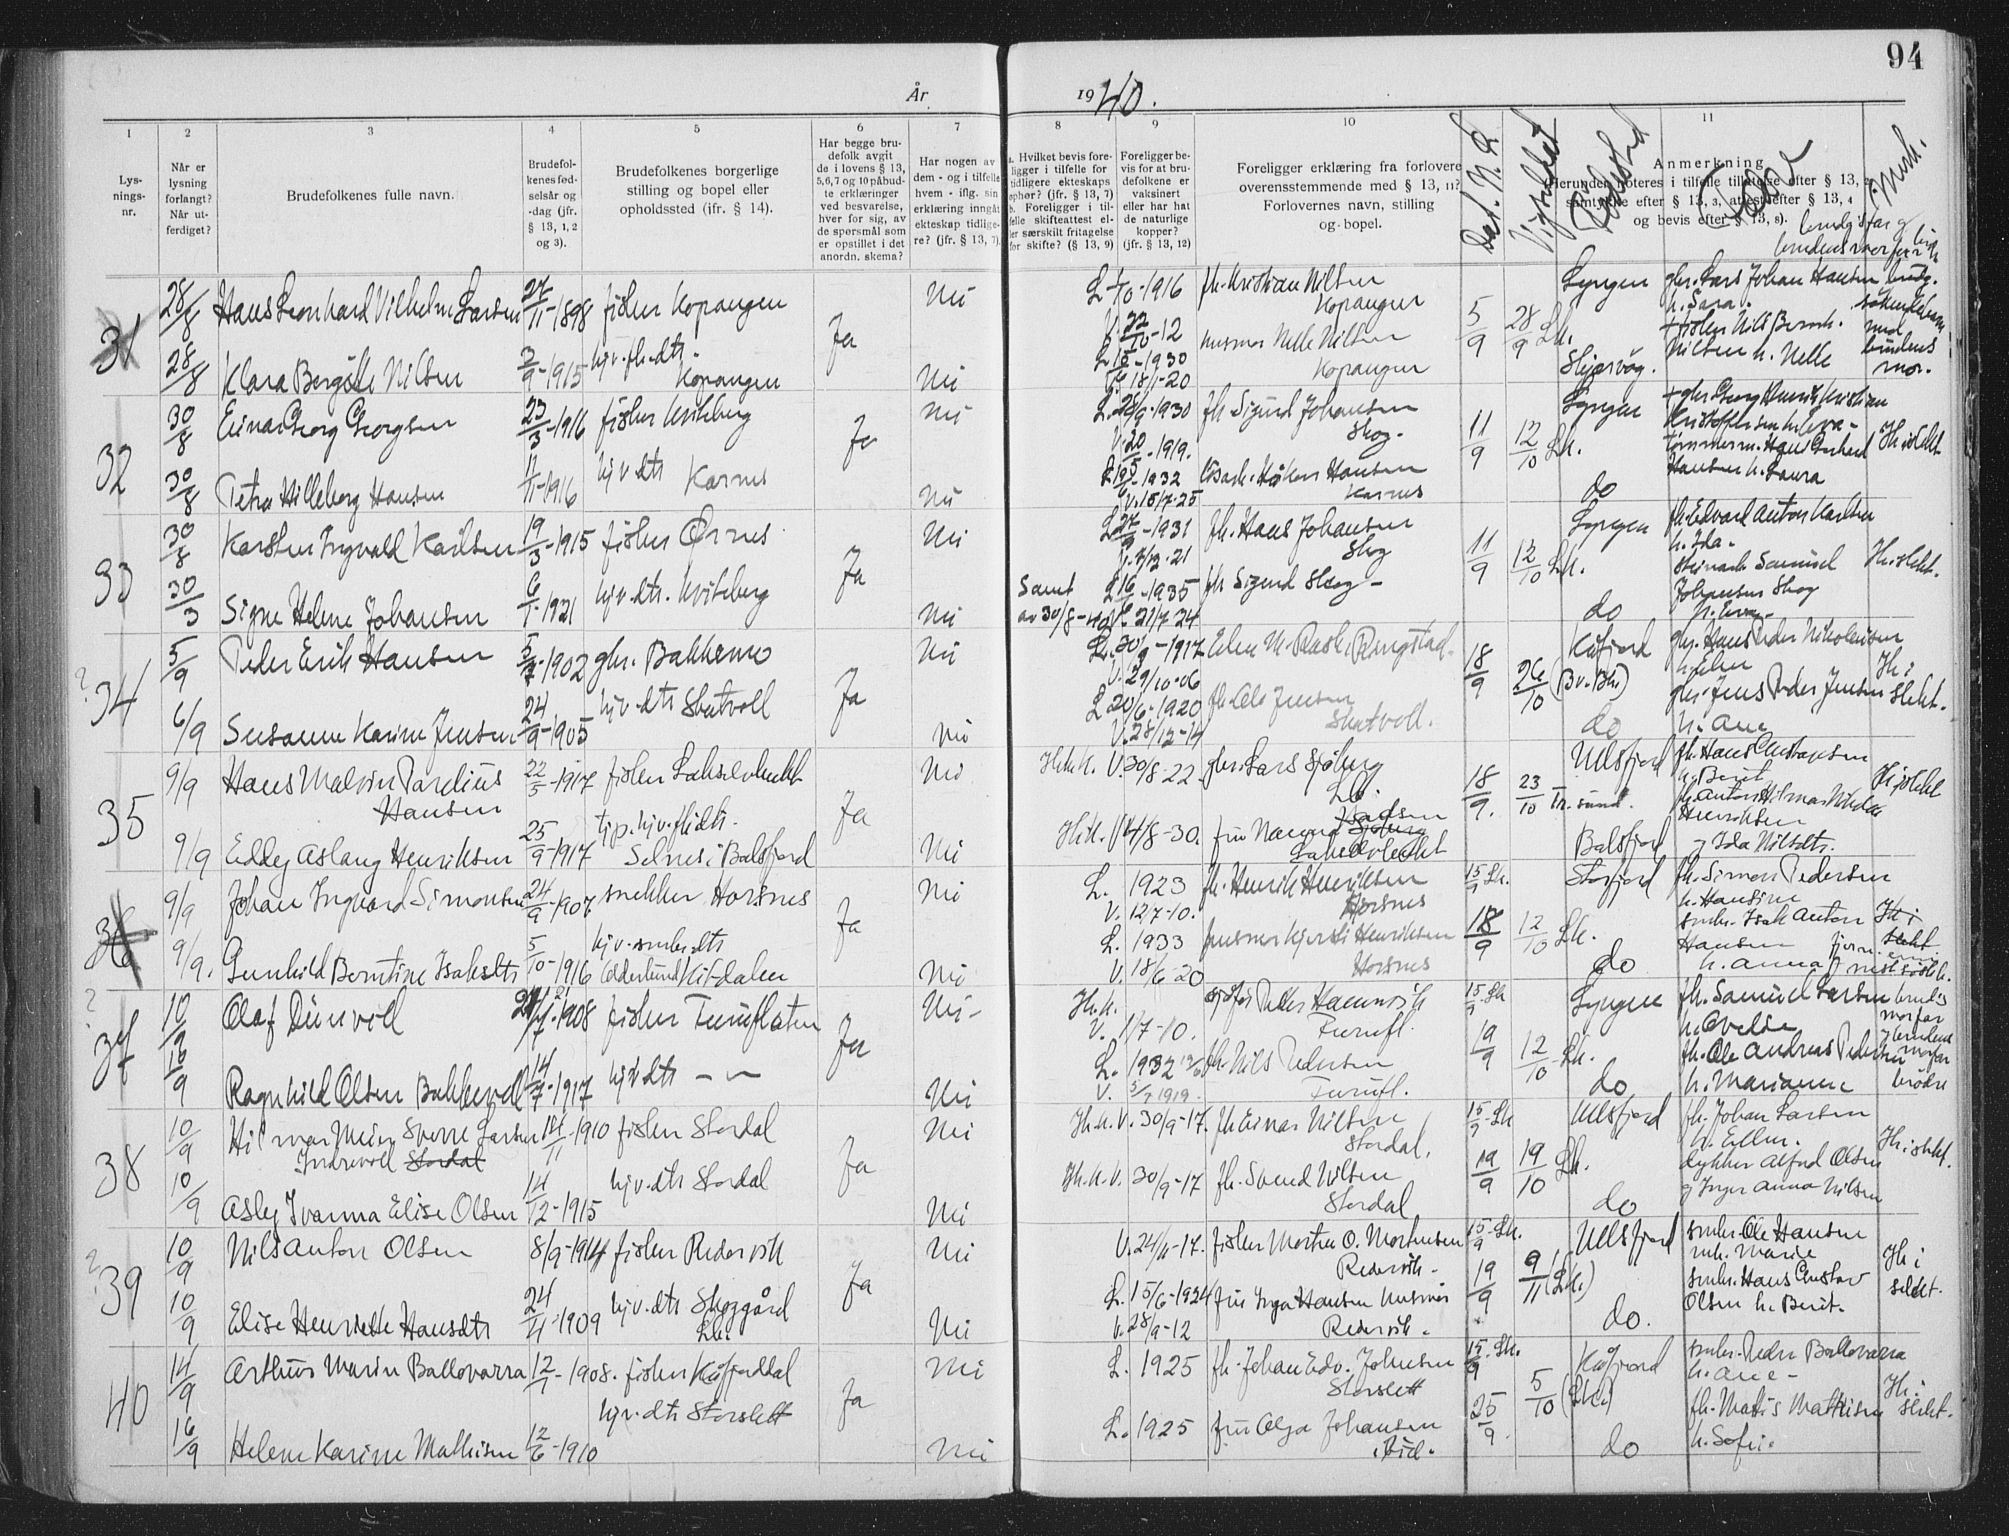 94
År 1940.
1 2 3 4 5 6 7 8 9 10 11
Lys-
nings-
nr.
Når er
lysning
forlangt?
Når ut-
ferdiget?
Brudefolkenes fulle navn.
Brudefol-
kenes fød-
selsår og
-dag (jfr.
§ 13, 1, 2
og 3).
Brudefolkenes borgerlige
stilling og bopel eller
opholdssted (jfr. § 14).
Har begge bru-
defolk avgit
de i lovens § 13,
5,6,7 og 10 påbud-
te erklæringer
ved besvarelse,
hver for sig, av
de spørsmål som
er opstillet i det
anordn. skema?
Har nogen av
dem - og i tilfelle
hvem - iflg. sin
erklæring inngått
ekteskap tidlige-
re? (jfr. § 13, 7).
a. Hvilket bevis fore-
ligger i tilfelle for
tidligere ekteskaps
ophør? (§ 13, 7)
b. Foreligger i til-
felle skifteattest el-
ler særskilt fritagelse
for skifte? (§ 13, 9)
Foreligger be-
vis for at bru-
defolkene er
vaksinert
eller har hat
de naturlige
kopper?
(jfr. § 13, 12)
Foreligger erklæring fra forlovere
overensstemmende med § 13, 11?
Forlovernes navn, stilling
og bopel.
Dat. N. L.
Vigselsted
Fødested
Anmerkning
(Herunder noteres i tilfelle tillatelse efter § 13, 2,
samtykke efter § 13, 3, attest efter § 13, 4
og bevis efter § 13, 8).
Merk.
31 28/8 Hans Leonhard Vilhelm Larsen 27/11-1898 fisker Kopangen Ja Nei
L 1/10-1916 fh. Kristian Nilsen
Kopangen
5/9 28/9 Lk. Lyngen gbr. Lars Johan Hansen
h. Sara.
28/8 Klara Bergitte Nilsen 3/9-1915 hjv. fh. dtr.
Kopangen Nei
V. 22/10-12
husmor Nelle Nilsen
Kopangen
V. 18/1-20
Skjervøy. + fisker Nils Bernh.
Nilsen h. Nelle
med
brudens
mor.
32 30/8 Einar Georg Georgsen 23/3-1916 fisker Kviteberg Ja Nei
L. 28/9-1930 fh. Sigurd Johansen
Skog.
V. 20/5-1919.
11/9 12/10 Lk. Lyngen + gbr. Georg Henrik Kristian
Kristoffersen h. Lova-
30/8 Petra Hilleborg Hansen 11/11-1916 hjv. dtr Karnes Nei
-1932 Håkon Hansen
Karnes
V. 15/7-25
do tømmerm. Hans Gerhard
Hansen h. Laura
Ik. i slekt.
33 30/8 Karsten Ingvald Karlsen 19/3-1915 fisker Ørnes Ja Nei
L -1931 fh. Hans Johansen
Skog
V. 3/12-21
11/9 12/10 Lk. Lyngen fh. Edvard Anton Karlsen
h. Ida-
30/3 Signe Helene Johansen 6/1-1921 hjv. dtr. Kviteberg Nei
Samt.
av 30/8-40
L 16/6-1935 fh Sigurd Skog-
V. 21/7-24
do Samuel
Johansen Skog
Ik. i slekt.
34 5/9 Peder Erik Hansen 5/2-1902 gbr. Bakkemo Ja Nei
L. 30/9-1917
V. 29/10-06
18/9 26/10 Kåfjord gbr. Hans Peder Nikolaisen
h. Elen
6/9 Susanne Karine Jensen 24/9-1905 hjv. dtr Skatvoll Nei
L 20/6-1920 fh. Ole Jensen
Skatvoll.
V. 28/12-14
do gbr. Jens Peder Jensen
h. Ane
Ik. i
slekt.
35 9/9 Hans Malvin Pardius
Hansen 22/5-1917 fisker Lakselvbukt Ja Nei
Ik. k. V. 30/8-22. gbr. Lars Sjøberg
Lb.
18/9. 23/10 Tr.sund. Ullsfjord fh. Hans Gustavsen
h. Berit
9/9 Eddey Aslaug Henriksen 25/9-1917 tjp. hjv. fh dtr.
Selnes i Balsfjord Nei
Ik. k. V 14/8-30. fru Nanna Sjøberg
Lakselvbukt
Balsfjord fh. Anton Hilmar
Henriksen
og Ida Nilsdtr.
Ik. i slekt
36 9/9 Johan Ingvard Simonsen 24/9-1907. snekker Horsnes Ja Nei
L. 1923 fh. Henrik Henriksen
Horsnes
V. 12/7-10.
15/9 Lk. Storfjord fh. Simon Pedersen
h. Hansine
9/9. Gunhild Berntine Isaksdtr 5/10-1916 hjv. smbr. dtr
Kitdalen Nei
L. 1933 husmor Henriksen
Horsnes
V. 18/6-20
18/9 12/10 Lk. do smbr. Isak Anton
Hansen
h. Anna
Ik. i
slekt
37 10/9 Olaf Dunvoll -1908 fisker Furuflaten Ja Nei-
Ik. k.
V. 1/7-10. Peder Hamnvik
Furufl.
15/9 Lk Lyngen fh. Samuel Larsen
16/9 Ragnhild Olsen Bakkevoll 14/7-1917 hjv dtr — — Nei
L. 1932 fh. Nils Pedersen
Furufl.
V. 5/7 1919.
19/9 12/10 Lk. do fh. Ole Andreas Pedersen
h. Marianne
38 10/9 Hilmar Meier Sverre Larsen
Indrevoll Stordal 14/11-1910 fisker Stordal Ja Nei
Ik. k. V. 30/9-17. fh Einar Nilsen
Stordal.
15/9 Lk Ullsfjord fh. Johan Larsen
h. Ellen.
10/9 Asley Ivarma Elise Olsen 14/12-1915 hjv. dtr Stordal Nei
Ik. k. V. 30/9-17 fh. Svend Nilsen
Stordal
19/9 19/10 Lk. do dykker Alfred Olsen
og Inger Anna Nilsen
Ik. i slekt.
39 10/9 Nils Anton Olsen 8/9-1914 fisker Rødervik Ja Nei
V. 24/11-17. fisker Morten O. Mortensen
Rødervik-
15/9 Lk. Ullsfjord smbr. Ole Hansen
mh. Marie
10/9 Elise Henriette Hansdtr 24/4-1909 hjv. dtr Skoggård
Lk. Nei
L. 15/6-1924 fru Inga Hansen husmor
Rødervik.
V. 28/9-12
19/9 9/11 (Lk.) do. smbr. Hans Gustav
Olsen h. Berit.
Ik. i
slekt.
40 14/9 Arthur Marin Ballovarra 12/1-1908. fisker Kåfjorddal Ja Nei
L. 1925 fh. Johan Edv. Johnsen
Storslett
15/9. Lk. Kåfjord smbr. Peder Ballovarra
h. Ane-
16/9 Helene Karine Mathisen 12/6-1910 hjv. dtr Storslett Nei
L. 1925 fru Olga Johansen
ibid.
25/9. 5/10 (Lk.) do fh. Matis Mathisen
h. Sofie.
Ik. i
slekt.